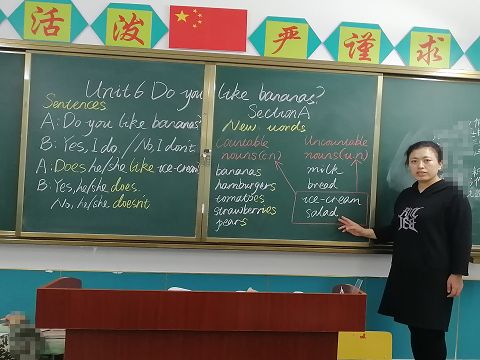 活泼
严谨求
Unit 6 Do you like bananas?
Section A
Sentences
A: Do you like bananas?
B: Yes, I do. / No, I don't.
A: Does he/she like ice-cream
B: Yes, he/she does.
No, he/she doesn't.
New words
Countable
nouns(cn)
bananas
hamburgers
tomatoes
strawberries
pears
Uncountable
nouns(un)
milk
bread
ice-cream
salad